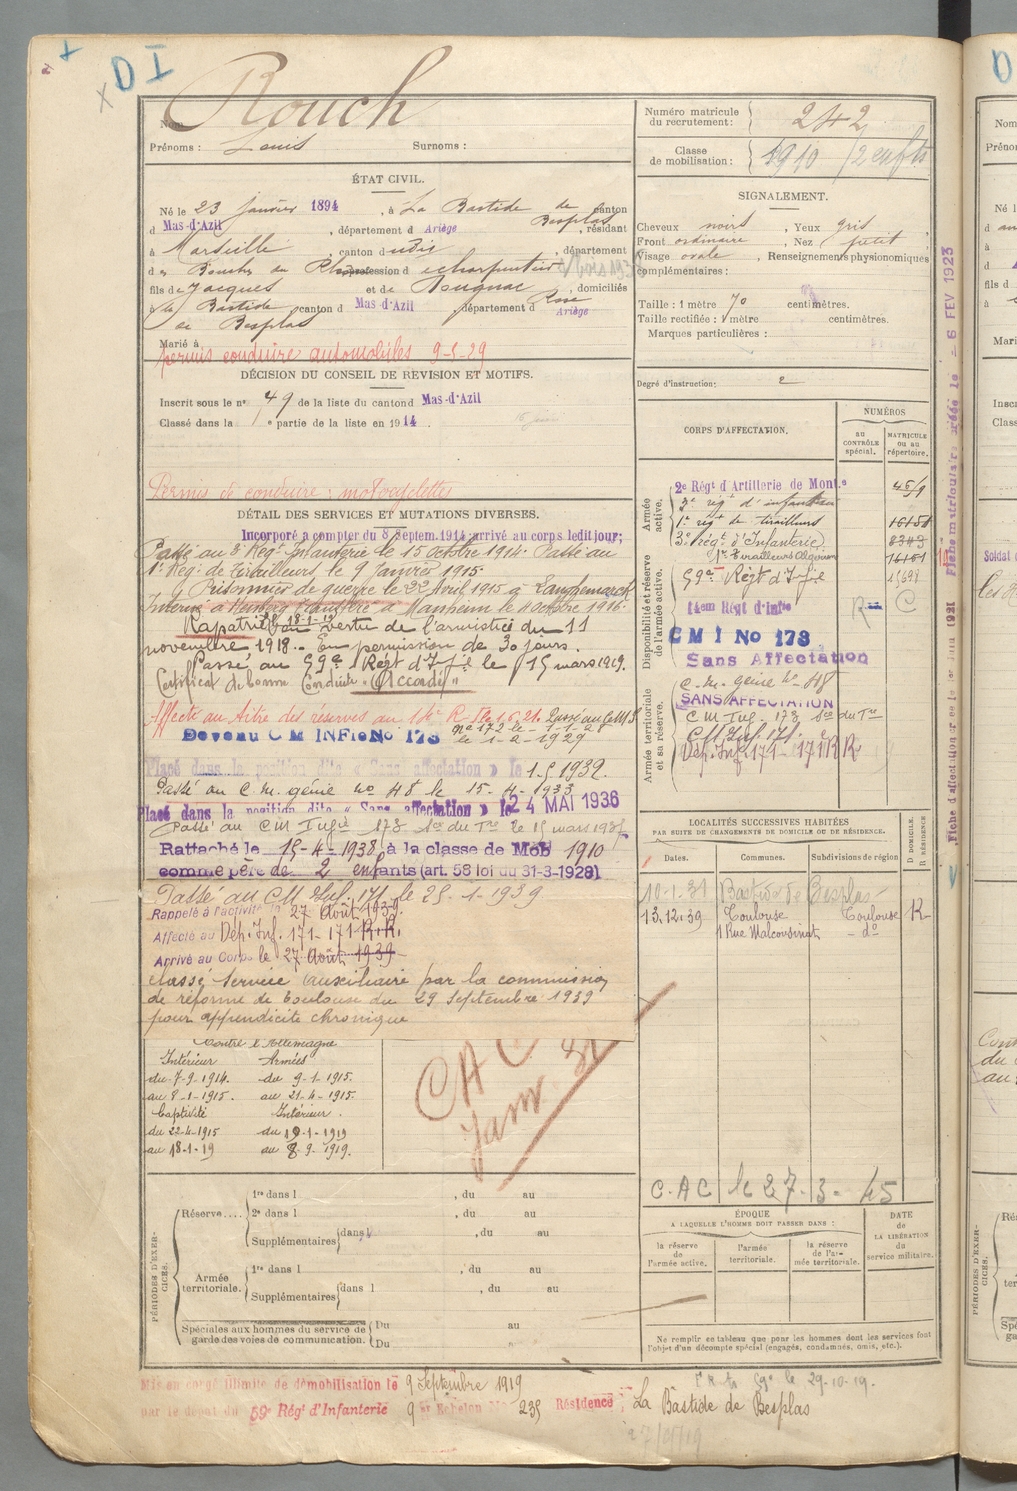 D I
Nom Rouch
Prénoms : Louis Surnoms :
Numéro matricule du recrutement : 242
Classe de mobilisation : 1910 /2 enfts
ÉTAT CIVIL.
Né le 23 janvier 1894, à La Bastide de Besplas, canton
d Mas-d'Azil, département d Ariège, résidant
à Marseille, canton d udis, département
des Bouches du Rhône, profession d charpentier
fils de Jacques et de Bougnac, domiciliés
à La Bastide de Besplas, canton d Mas d'Azil, département d Ariège
Marié à
permis conduire automobiles 9-5-29
SIGNALEMENT.
Cheveux noirs, Yeux gris
Front ordinaire, Nez petit
Visage ovale, Renseignements physionomiques
complémentaires :
Taille : 1 mètre 70 centimètres.
Taille rectifiée : 1 mètre centimètres.
Marques particulières :
Degré d'instruction : 2
DÉCISION DU CONSEIL DE REVISION ET MOTIFS.
Inscrit sous le n° 49 de la liste du canton d Mas-d'Azil
Classé dans la 1e partie de la liste en 1914
Permis de conduire : motocyclettes
DÉTAIL DES SERVICES ET MUTATIONS DIVERSES.
Incorporé à compter du 8 Septem. 1914 arrivé au corps ledit jour;
Passé au 3e Rég. Infanterie le 15 octobre 1914. Passé au
1er Rég. de Tirailleurs le 9 Janvier 1915.
Prisonnier de guerre le 22 Avril 1915 à Langhemarck
Interné à à Manheim le 4 octobre 1916.
Rapatrié le 18-1-19 en vertu de l'armistice du 11
novembre 1918. En permission de 30 jours.
Passé au 59e Régt d'Infie le 15 mars 1919.
Certificat de bonne Conduite "Accordé"
Affecté au titre des réserves au 14e R.I. le 1.6.21. Passé au C.M.I.
n° 172 le 1-1-28
Devenu C M INFie No 173 le 1-2-1929
Placé dans la position dite « Sans affectation » le 1.5 1932.
Passé au C.M. génie no 48 le 15-4-1933
Placé dans la position dite « Sans affectation » le 24 MAI 1936
Passé au CM Infie 173 du Tre le 15 mars 193
Rattaché le 15-4-1938 à la classe de Mob 1910
comme père de 2 enfants (art. 58 loi du 31-3-1928)
Passé au CM Inf. 171 le 25-1-1939
Rappelé à l'activité le 27 Août 1939.
Affecté au Dép. Inf. 171 - 171 R.R.
Arrivé au Corps le 27 Août 1939
classé service auxiliaire par la commission
de réforme de Toulouse du 29 Septembre 1939
pour appendicite chronique
CORPS D'AFFECTATION.
NUMÉROS
au CONTRÔLE spécial.
MATRICULE ou au répertoire.
Armée active.
2e Régt d'Artillerie de Montne
3e régt d'infanterie
1er régt de tirailleurs 16151
3e Régt d'Infanterie 8343
1er Tirailleurs Algériens 16151
Disponibilité et réserve de l'armée active.
59e Régt d'Infie
14em Régt d'Infie C
CMI No 173
Sans Affectation
Armée territoriale et sa réserve.
C.M. génie No 48
SANS AFFECTATION
CM Inf. 173 du Tre
CM Inf. 171.
Dép. Inf. 171 - 171 RR
LOCALITÉS SUCCESSIVES HABITÉES
PAR SUITE DE CHANGEMENTS DE DOMICILE OU DE RÉSIDENCE.
Dates. Communes. Subdivisions de région.
D DOMICILE. R RÉSIDENCE
10-1-31 Bastide de Besplas
13.12.39 Toulouse Toulouse R
1 Rue Malcousinat - do
Contre l'Allemagne
Intérieur Armées
du 7-9-1914. du 9-1-1915.
au 8-1-1915. au 21-4-1915.
Captivité Intérieur.
du 22-4-1915 du 19-1-1919
au 18-1-19 au 8-9-1919.
CAC
Janv 31
C.A.C le 27-3-45
PÉRIODES D'EXERCICES.
Réserve....
1re dans l , du au
2e dans l , du au
Supplémentaires dans l , du au
Armée territoriale.
1re dans l , du au
Supplémentaires dans l , du au
Spéciales aux hommes du service de garde des voies de communication.
Du au
Du au
ÉPOQUE
A LAQUELLE L'HOMME DOIT PASSER DANS :
la réserve de l'armée active.
l'armée territoriale.
la réserve de l'armée territoriale.
DATE de LA LIBÉRATION du service militaire.
Ne remplir ce tableau que pour les hommes dont les services font l'objet d'un décompte spécial (engagés, condamnés, omis, etc.).
Mis en congé illimité de démobilisation le 9 Septembre 1919
par le dépôt du 59e Régt d'Infanterie 9e Echelon No 235 Résidence : La Bastide de Besplas
le 29-10-19.
Fiche matriculaire créée le - 6 FEV 1923
Fiche d'affectation créée le 1er Juin 1921